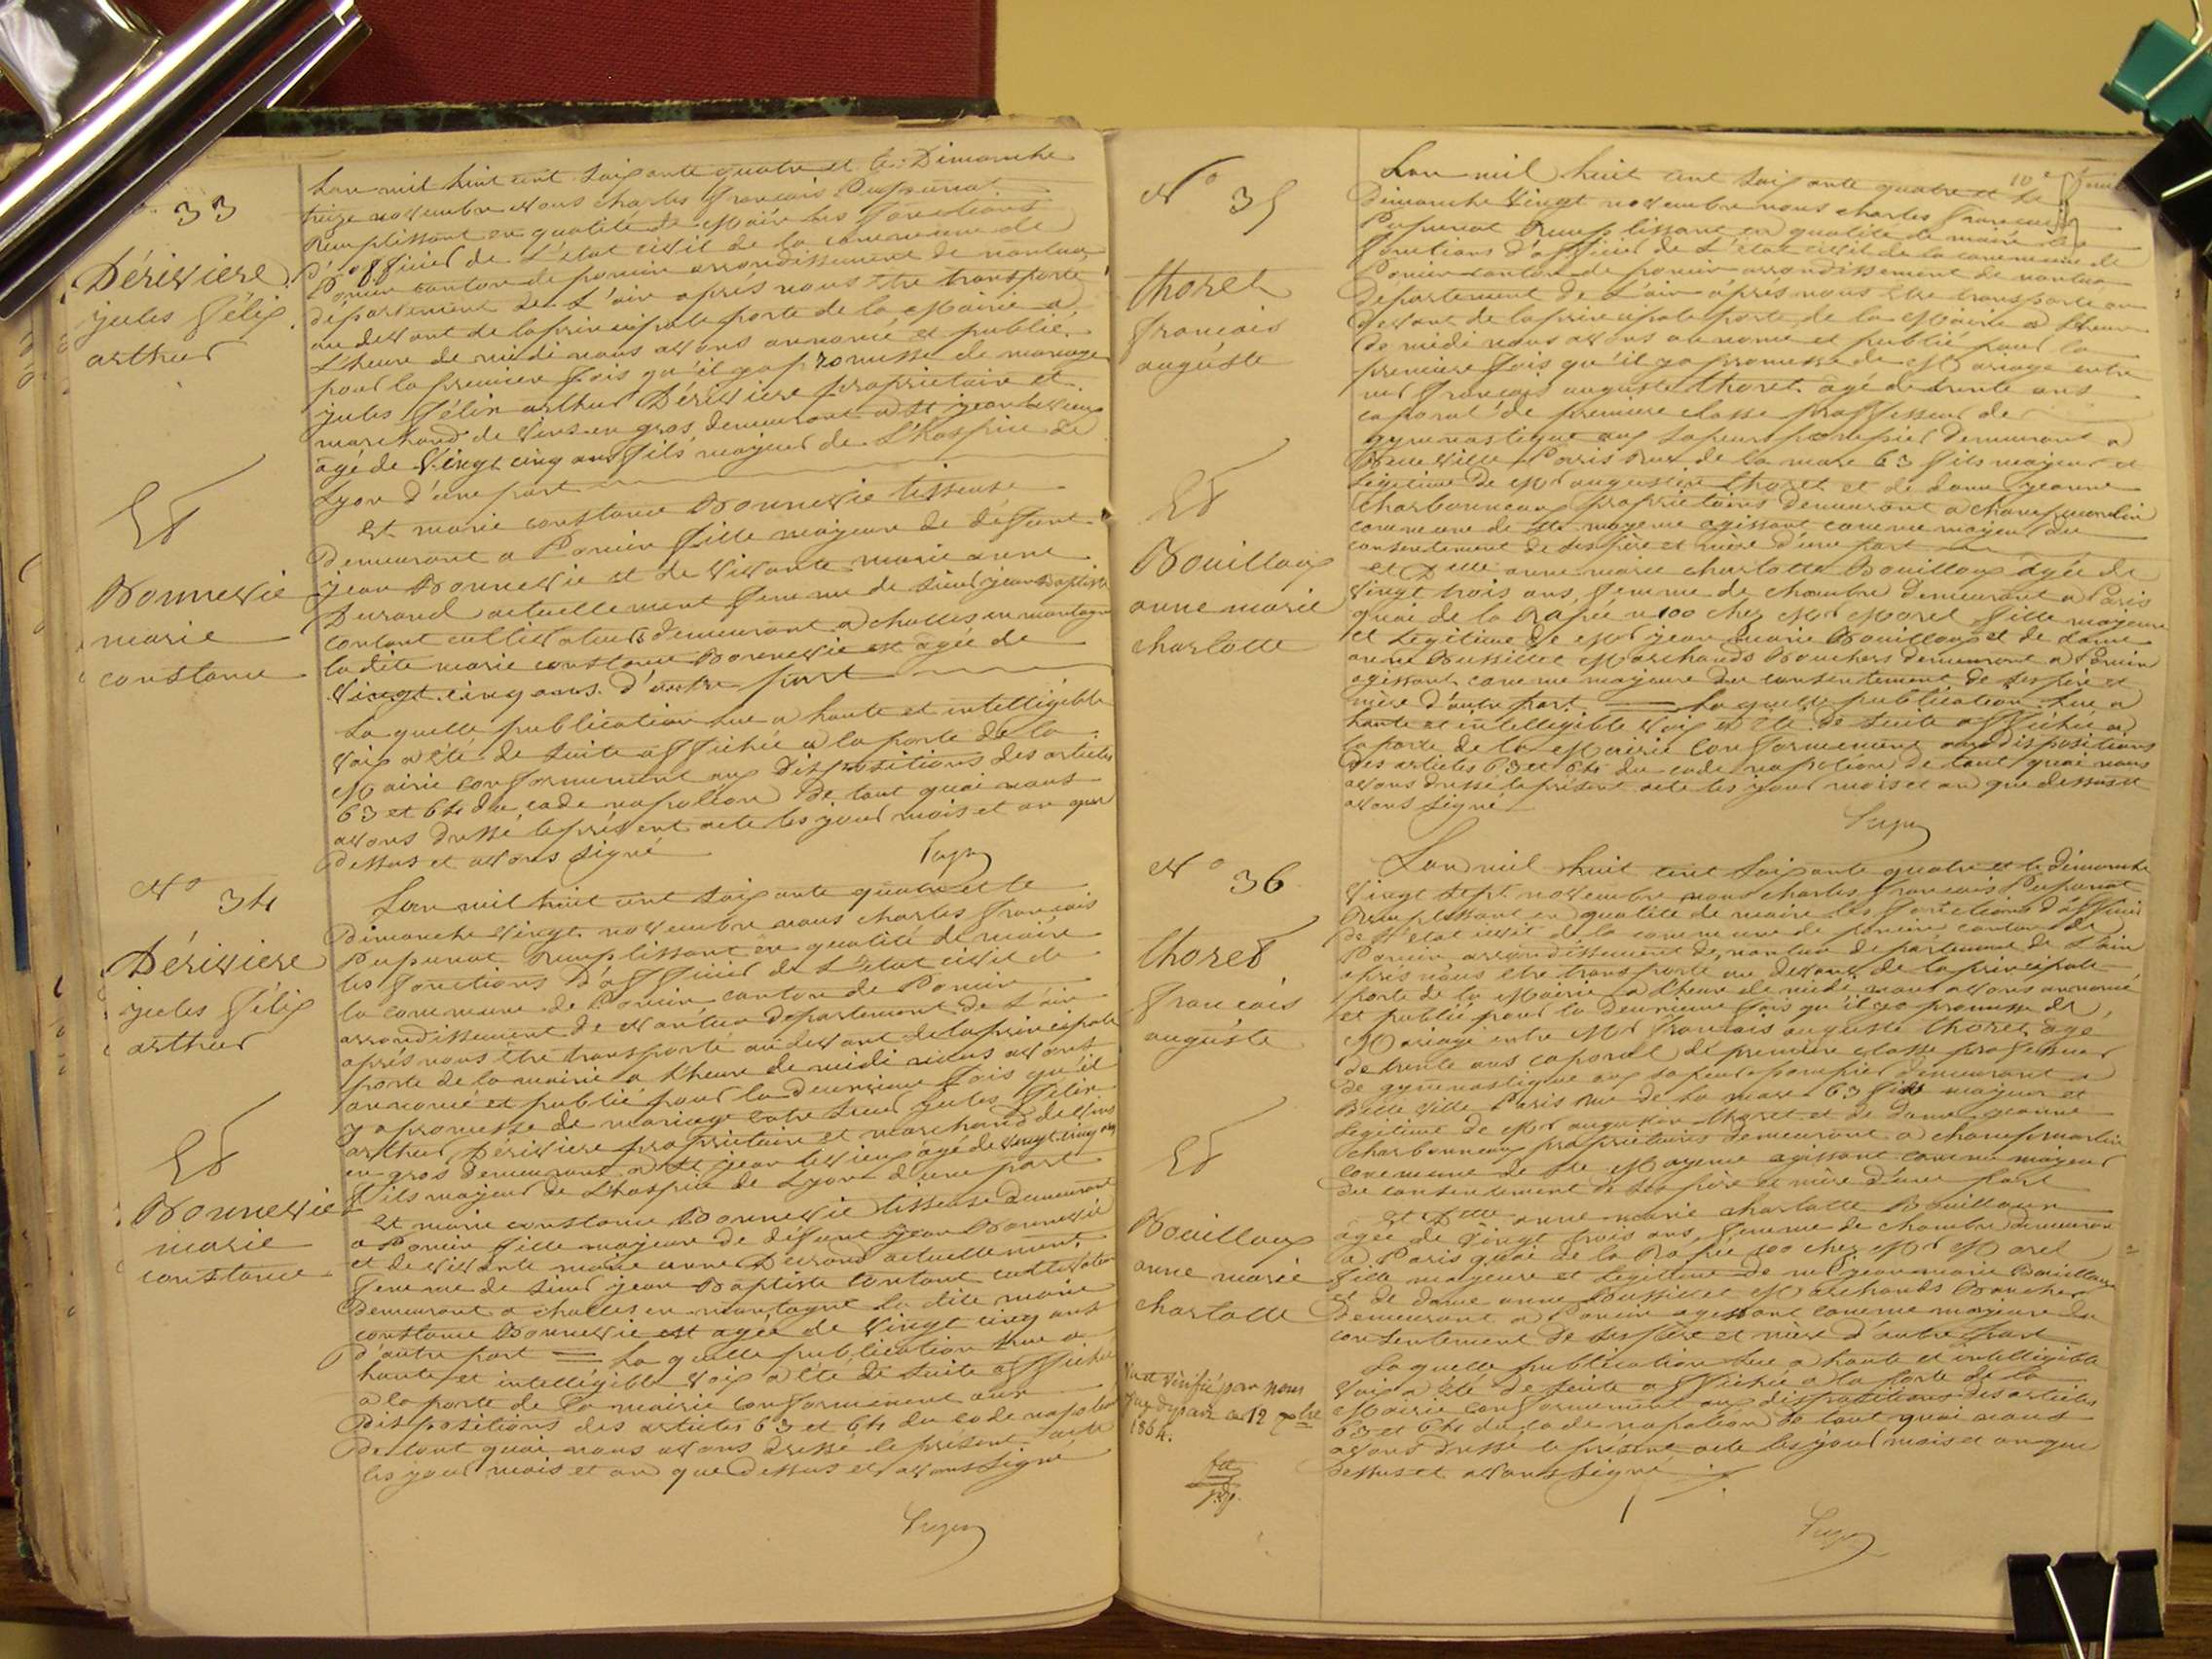 33
Dérivière
jules félix
arthur
Et
Bonnevie
marie
constance
Lan mil huit cent soixante quatre et le Dimanche
treize novembre nous charles francois Pupunat
Remplissant en qualité de Maire les fonctions
d'officier de L'état civil de la commune de
Poncin canton de poncin arrondissement de nantua
département de L'ain aprés nous être transporté
au devant de la principale porte de la Mairie a
L'heure de midi nous avons annoncé et publié
pour la premiere fois qu'il y a promesse de mariage
jules félix arthur Dérivière propriétaire et
marchand de vins en gros demeurant a St jean le vieux
agé de vingt cinq ans fils majeur de L'hospice de
Lyon d'une part
Et marie constance Bonnevie tisseuse
Demeurant a Poncin fille majeure de défunt
jean Bonnevie et de vivante marie anne
Durand actuellement femme de sieur jean Baptiste
contant cultivateur demeurant a challes en montagne
la dite marie constance Bonnevie est agée de
vingt cinq ans d'autre part
La quelle publication lue a haute et intelligible
voix a été de suite affichée a la porte de la
Mairie conformement aux Dispositions des articles
63 et 64 du code napoléon De tout quoi nous
avons dressé le présent acte les jour mois et an que
Dessus et avons signé
N° 34
Dérivière
jules félix
arthur
Et
Bonnevie
marie
constance
Lan mil huit cent soixante quatre et le
Dimanche vingt novembre nous charles francois
Pupunat Remplissant en qualité de maire
les fonctions d'officier de L'état civil de
la commune de Poncin canton de Poncin
arrondissement de Nantua département de L'ain
aprés nous être transporté au devant de la principale
porte de la mairie a L'heure de midi nous avons
annoncé et publié pour la deuxieme fois qu'il
y a promesse de mariage entre sieur jules félix
arthur Dérivière propriétaire et marchand de vins
en gros demeurant a St jean le vieux agé de vingt cinq ans
fils majeur de L'hospice de Lyon d'une part
Et marie constance Bonnevie tisseuse demeurant
a Poncin fille majeure de défunt jean Bonnevie
et de vivante marie anne Durand actuellement
femme de sieur jean Baptiste contant cultivateur
Demeurant a challes en montagne la dite marie
constance Bonnevie est agée de vingt cinq ans
d'autre part = La quelle publication lue a
haute et intelligible voix a été de suite affichée
a la porte de la mairie conformement aux
Dispositions des articles 63 et 64 du code napoléon
De tout quoi nous avons dressé le présent acte
les jour mois et an que Dessus et avons signé
N° 35
thoret
francois
auguste
Et
Bouilloux
anne marie
charlotte
10e
Lan mil huit cent soixante quatre et le
Dimanche vingt novembre nous charles francois
Pupunat Remplissant en qualité de maire les
fonctions d'officier de L'état civil de la commune de
Poncin canton de poncin arrondissement de nantua
département de L'ain aprés nous être transporté au
devant de la principale porte de la Mairie a L'heure
de midi nous avons annoncé et publié pour la
premiere fois qu'il y a promesse de Mariage entre
mr francois auguste thoret agé de trente ans
caporal de premiere classe proffesseur de
gymnastique aux sapeurs pompier demeurant a
Belleville Paris Rue de la mare 63 fils majeur et
Légitime de Mr augustin thoret et de dame jeanne
Charbonneau propriétaires demeurant a champmartin
commune de Ste mayeme agissant comme majeur du
consentement de ses père et mère d'une part
et Delle anne marie charlotte Bouilloux agée de
vingt trois ans, femme de chambre demeurant a Paris
quai de la Rapée n 100 chez Mr Morel fille majeure
et Légitime de Mr jean marie Bouilloux et de dame
anne Bussillet Marchands Bouchers demeurant a Poncin
agissant comme majeure du consentement de ses père et
mère d'autre part = La quelle publication lue a
haute et intelligible voix a été de suite affichée a
la porte de la Mairie Conformement aux Dispositions
Des articles 63 et 64 du code napoléon de tout quoi nous
avons dressé le présent acte les jour mois et an que dessus et
avons signé
N° 36
thoret
francois
auguste
Et
Bouilloux
anne marie
charlotte
Vu et vérifié par nous
Juge de paix ce 12 xbre
1864.
Lan mil huit cent soixante quatre et le dimanche
vingt sept novembre nous charles francois Pupunat
Remplissant en qualité de maire les fonctions d'officier
de L'état civil de la commune de poncin canton de
Poncin arrondissement de nantua département de L'ain
aprés nous être transporté au devant de la principale
porte de la Mairie a L'heure de midi nous avons annoncé
et publié pour la deuxieme fois qu'il y a promesse de
Mariage entre Mr francois auguste thoret agé
de trente ans caporal de premiere classe professeur
de gymnastique aux sapeurs pompier demeurant a
Belleville Paris Rue de la mare 63 fils majeur et
Légitime de Mr augustin thoret et de dame jeanne
charbonneau propriétaires demeurant a champmartin
commune de Ste Mayeme agissant comme majeur
du consentement de ses père et mère d'une part
et Delle anne marie charlotte Bouilloux
agée de vingt trois ans, femme de chambre demeurant
a Paris quai de la Rapée 100 chez Mr Morel
fille majeure et Légitime de mr jean marie Bouilloux
et de dame anne Bussillet Marchands Boucher
Demeurant a Poncin agissant comme majeure du
consentement de ses père et mère d'autre part
La quelle publication lue a haute et intelligible
voix a été de suite affichée a la porte de la
Mairie conformement aux dispositions des articles
63 et 64 du code napoléon De tout quoi nous
avons dressé le présent acte les jour mois et an que
dessus et avons signé